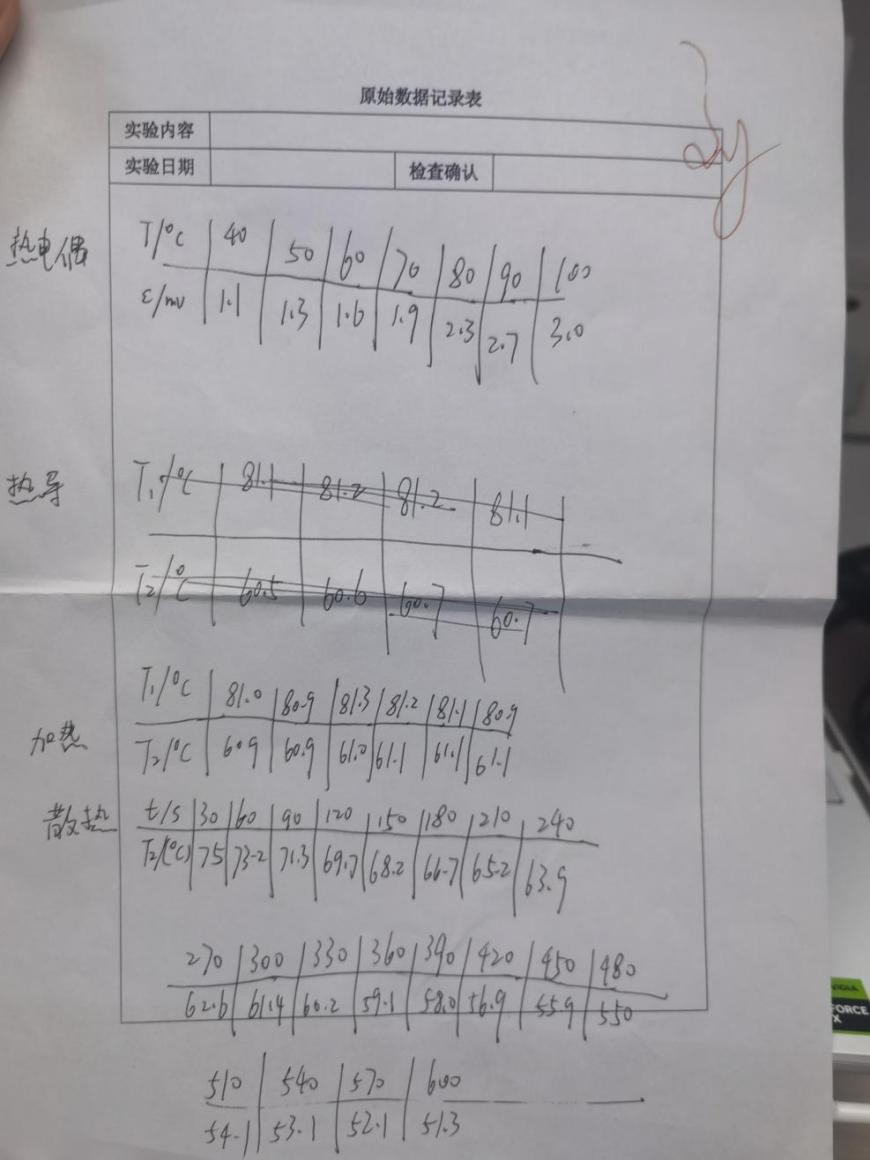 原始数据记录表
实验内容
实验日期 检查确认
热电偶 T/°C 40 50 60 70 80 90 100
ε/mv 1.1 1.3 1.6 1.9 2.3 2.7 3.0
热导 T₁/°C 81.1 81.2 81.2 81.1
T₂/°C 60.5 60.6 60.7 60.7
T₁/°C 81.0 80.9 81.3 81.2 81.1 80.9
加热 T₂/°C 60.9 60.9 61.0 61.1 61.1 61.1
散热 t/s 30 60 90 120 150 180 210 240
T₂/(°C) 75 73.2 71.3 69.7 68.2 66.7 65.2 63.9
270 300 330 360 390 420 450 480
62.6 61.4 60.2 59.1 58.0 56.9 55.9 55.0
510 540 570 600
54.1 53.1 52.1 51.3
FORCE
X